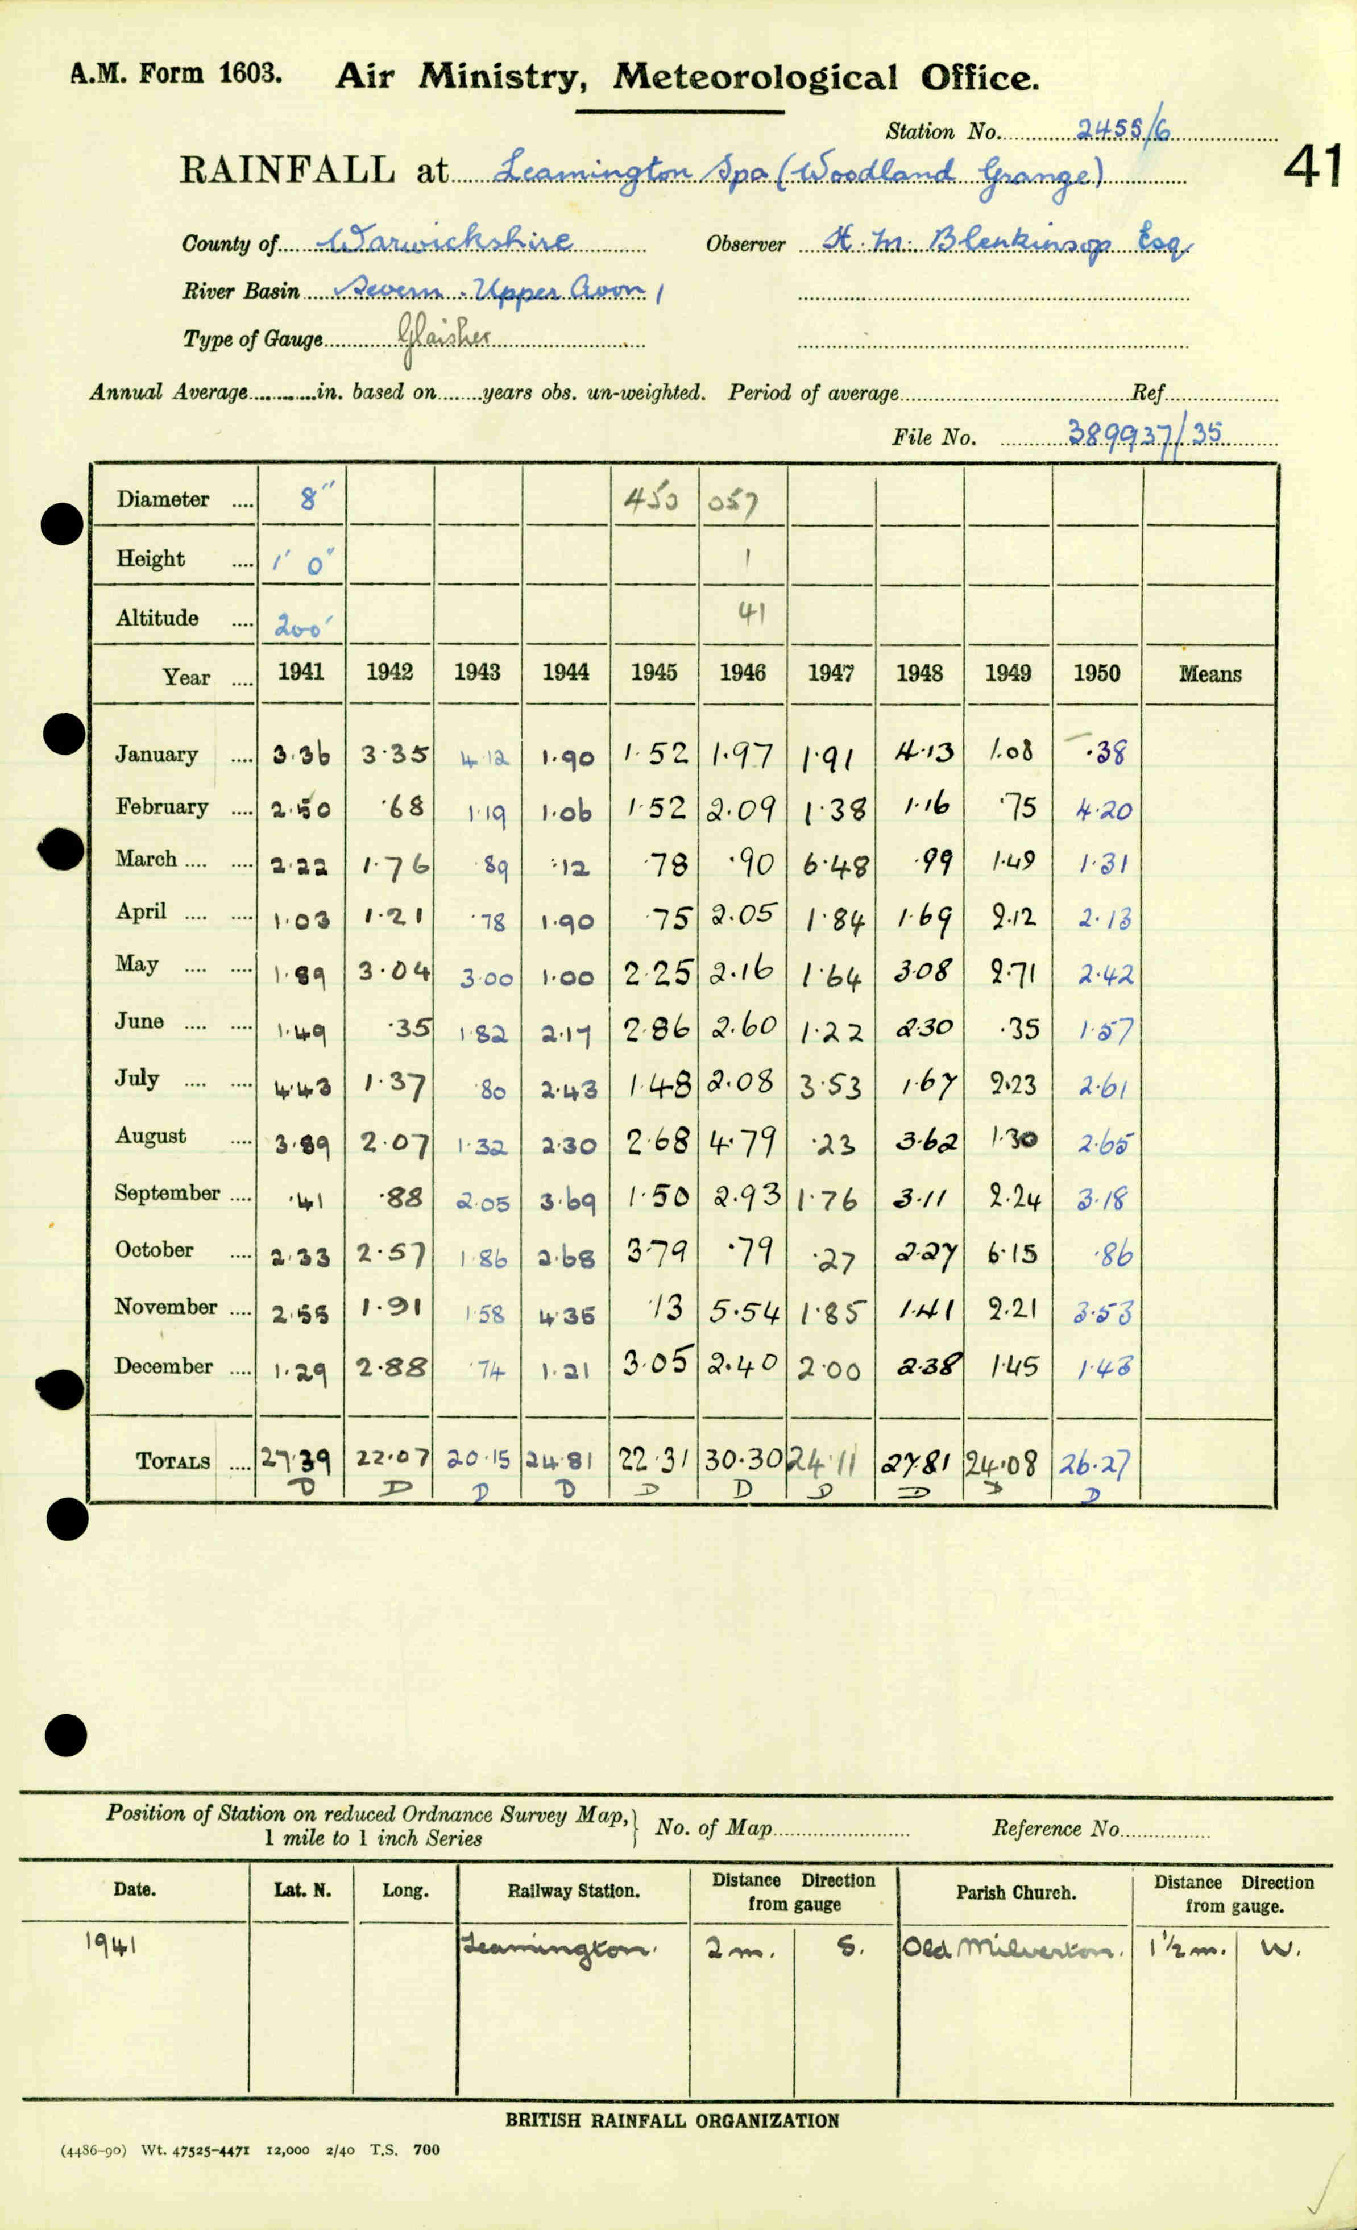 A.M. Form 1603. Air Ministry, Meteorological Office.
Station No. 2455/6
41
RAINFALL at Leamington Spa (Woodland Grange)
County of Warwickshire Observer H. M. Blenkinsop Esq
River Basin Severn . Upper Avon
Type of Gauge Glaisher
Annual Average in. based on years obs. un-weighted. Period of average Ref.
File No. 389937/35
Diameter 8" 450 057
Height 1' 0" 1
Altitude 200' 41
Year 1941 1942 1943 1944 1945 1946 1947 1948 1949 1950 Means
January 3.36 3.35 4.12 1.90 1.52 1.97 1.91 4.13 1.08 .38
February 2.50 .68 1.19 1.06 1.52 2.09 1.38 1.16 .75 4.20
March 2.22 1.76 .89 .12 .78 .90 6.48 .99 1.49 1.31
April 1.03 1.21 .78 1.90 .75 2.05 1.84 1.69 2.12 2.13
May 1.89 3.04 3.00 1.00 2.25 2.16 1.64 3.08 2.71 2.42
June 1.49 .35 1.82 2.17 2.86 2.60 1.22 2.30 .35 1.57
July 4.43 1.37 .80 2.43 1.48 2.08 3.53 1.67 2.23 2.61
August 3.89 2.07 1.32 2.30 2.68 4.79 .23 3.62 1.30 2.65
September .41 .88 2.05 3.69 1.50 2.93 1.76 3.11 2.24 3.18
October 2.33 2.57 1.86 2.68 3.79 .79 .27 2.27 6.15 .86
November 2.55 1.91 1.58 4.35 .13 5.54 1.85 1.41 2.21 3.53
December 1.29 2.88 .74 1.21 3.05 2.40 2.00 2.38 1.45 1.43
TOTALS 27.39 22.07 20.15 24.81 22.31 30.30 24.11 27.81 24.08 26.27
D D D D D D D D D D
Position of Station on reduced Ordnance Survey Map, No. of Map Reference No.
1 mile to 1 inch Series
Date. Lat. N. Long. Railway Station. Distance Direction Parish Church. Distance Direction
from gauge from gauge.
1941 Leamington. 2 m. S. Old Milverton. 1½ m. W.
BRITISH RAINFALL ORGANIZATION
(4486-90) Wt. 47525-4471 12,000 2/40 T.S. 700